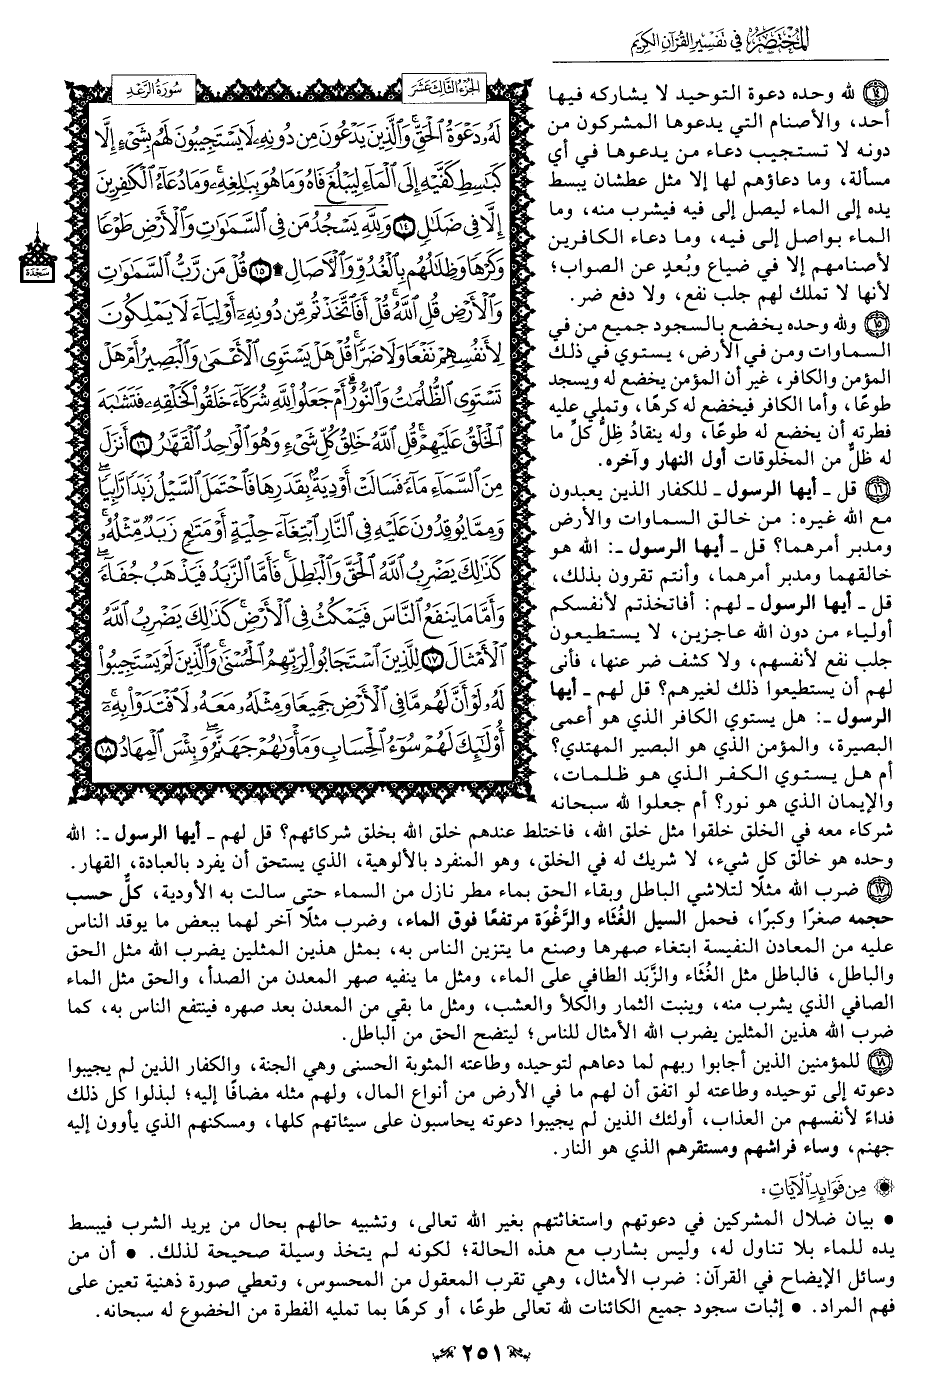 المختصر في تفسير القرآن الكريم
الجزء الثالث عشر
سورة الرعد
لَهُۥ دَعۡوَةُ ٱلۡحَقِّۚ وَٱلَّذِينَ يَدۡعُونَ مِن دُونِهِۦ لَا يَسۡتَجِيبُونَ لَهُم بِشَيۡءٍ إِلَّا
كَبَٰسِطِ كَفَّيۡهِ إِلَى ٱلۡمَآءِ لِيَبۡلُغَ فَاهُ وَمَا هُوَ بِبَٰلِغِهِۦۚ وَمَا دُعَآءُ ٱلۡكَٰفِرِينَ
إِلَّا فِي ضَلَٰلٖ ١٤ وَلِلَّهِۤ يَسۡجُدُۤ مَن فِي ٱلسَّمَٰوَٰتِ وَٱلۡأَرۡضِ طَوۡعٗا
وَكَرۡهٗا وَظِلَٰلُهُم بِٱلۡغُدُوِّ وَٱلۡأٓصَالِ۩ ١٥ قُلۡ مَن رَّبُّ ٱلسَّمَٰوَٰتِ
وَٱلۡأَرۡضِ قُلِ ٱللَّهُۚ قُلۡ أَفَٱتَّخَذۡتُم مِّن دُونِهِۦٓ أَوۡلِيَآءَ لَا يَمۡلِكُونَ
لِأَنفُسِهِمۡ نَفۡعٗا وَلَا ضَرّٗاۚ قُلۡ هَلۡ يَسۡتَوِي ٱلۡأَعۡمَىٰ وَٱلۡبَصِيرُ أَمۡ هَلۡ
تَسۡتَوِي ٱلظُّلُمَٰتُ وَٱلنُّورُۗ أَمۡ جَعَلُواْ لِلَّهِ شُرَكَآءَ خَلَقُواْ كَخَلۡقِهِۦ فَتَشَٰبَهَ
ٱلۡخَلۡقُ عَلَيۡهِمۡۚ قُلِ ٱللَّهُ خَٰلِقُ كُلِّ شَيۡءٖ وَهُوَ ٱلۡوَٰحِدُ ٱلۡقَهَّٰرُ ١٦ أَنزَلَ
مِنَ ٱلسَّمَآءِ مَآءٗ فَسَالَتۡ أَوۡدِيَةُۢ بِقَدَرِهَا فَٱحۡتَمَلَ ٱلسَّيۡلُ زَبَدٗا رَّابِيٗاۖ
وَمِمَّا يُوقِدُونَ عَلَيۡهِ فِي ٱلنَّارِ ٱبۡتِغَآءَ حِلۡيَةٍ أَوۡ مَتَٰعٖ زَبَدٞ مِّثۡلُهُۥۚ
كَذَٰلِكَ يَضۡرِبُ ٱللَّهُ ٱلۡحَقَّ وَٱلۡبَٰطِلَۚ فَأَمَّا ٱلزَّبَدُ فَيَذۡهَبُ جُفَآءٗۖ
وَأَمَّا مَا يَنفَعُ ٱلنَّاسَ فَيَمۡكُثُ فِي ٱلۡأَرۡضِۚ كَذَٰلِكَ يَضۡرِبُ ٱللَّهُ
ٱلۡأَمۡثَالَ ١٧ لِلَّذِينَ ٱسۡتَجَابُواْ لِرَبِّهِمُ ٱلۡحُسۡنَىٰۚ وَٱلَّذِينَ لَمۡ يَسۡتَجِيبُواْ
لَهُۥ لَوۡ أَنَّ لَهُم مَّا فِي ٱلۡأَرۡضِ جَمِيعٗا وَمِثۡلَهُۥ مَعَهُۥ لَٱفۡتَدَوۡاْ بِهِۦٓۚ
أُوْلَٰٓئِكَ لَهُمۡ سُوٓءُ ٱلۡحِسَابِ وَمَأۡوَىٰهُمۡ جَهَنَّمُۖ وَبِئۡسَ ٱلۡمِهَادُ ١٨
سجدة
١٤ لله وحده دعوة التوحيد لا يشاركه فيها
أحد، والأصنام التي يدعوها المشركون من
دونه لا تستجيب دعاء من يدعوها في أي
مسألة، وما دعاؤهم لها إلا مثل عطشان يبسط
يده إلى الماء ليصل إلى فيه فيشرب منه، وما
الماء بواصل إلى فيه، وما دعاء الكافرين
لأصنامهم إلا في ضياع وبُعدٍ عن الصواب؛
لأنها لا تملك لهم جلب نفع، ولا دفع ضر.
١٥ ولله وحده يخضع بالسجود جميع من في
السماوات ومن في الأرض، يستوي في ذلك
المؤمن والكافر، غير أن المؤمن يخضع له ويسجد
طوعًا، وأما الكافر فيخضع له كرهًا، وتملي عليه
فطرته أن يخضع له طوعًا، وله ينقادُ ظِلُّ كلِّ ما
له ظلٌّ من المخلوقات أول النهار وآخره.
١٦ قل ـ أيها الرسول ـ للكفار الذين يعبدون
مع الله غيره: من خالق السماوات والأرض
ومدبر أمرهما؟ قل ـ أيها الرسول ـ: الله هو
خالقهما ومدبر أمرهما، وأنتم تقرون بذلك،
قل ـ أيها الرسول ـ لهم: أفاتخذتم لأنفسكم
أولياء من دون الله عاجزين، لا يستطيعون
جلب نفع لأنفسهم، ولا كشف ضر عنها، فأنى
لهم أن يستطيعوا ذلك لغيرهم؟ قل لهم ـ أيها
الرسول ـ: هل يستوي الكافر الذي هو أعمى
البصيرة، والمؤمن الذي هو البصير المهتدي؟
أم هل يستوي الكفر الذي هو ظلمات،
والإيمان الذي هو نور؟ أم جعلوا لله سبحانه
شركاء معه في الخلق خلقوا مثل خلق الله، فاختلط عندهم خلق الله بخلق شركائهم؟ قل لهم ـ أيها الرسول ـ: الله
وحده هو خالق كل شيء، لا شريك له في الخلق، وهو المنفرد بالألوهية، الذي يستحق أن يفرد بالعبادة، القهار.
١٧ ضرب الله مثلًا لتلاشي الباطل وبقاء الحق بماء مطر نازل من السماء حتى سالت به الأودية، كلٌّ حسب
حجمه صغرًا وكبرًا، فحمل السيل الغُثَاء والرَّغْوَة مرتفعًا فوق الماء، وضرب مثلًا آخر لهما ببعض ما يوقد الناس
عليه من المعادن النفيسة ابتغاء صهرها وصنع ما يتزين الناس به، بمثل هذين المثلين يضرب الله مثل الحق
والباطل، فالباطل مثل الغُثَاء والزَّبَد الطافي على الماء، ومثل ما ينفيه صهر المعدن من الصدأ، والحق مثل الماء
الصافي الذي يشرب منه، وينبت الثمار والكلأ والعشب، ومثل ما بقي من المعدن بعد صهره فينتفع الناس به، كما
ضرب الله هذين المثلين يضرب الله الأمثال للناس؛ ليتضح الحق من الباطل.
١٨ للمؤمنين الذين أجابوا ربهم لما دعاهم لتوحيده وطاعته المثوبة الحسنى وهي الجنة، والكفار الذين لم يجيبوا
دعوته إلى توحيده وطاعته لو اتفق أن لهم ما في الأرض من أنواع المال، ولهم مثله مضافًا إليه؛ لبذلوا كل ذلك
فداءً لأنفسهم من العذاب، أولئك الذين لم يجيبوا دعوته يحاسبون على سيئاتهم كلها، ومسكنهم الذي يأوون إليه
جهنم، وساء فراشهم ومستقرهم الذي هو النار.
من فوائد الآيات:
• بيان ضلال المشركين في دعوتهم واستغاثتهم بغير الله تعالى، وتشبيه حالهم بحال من يريد الشرب فيبسط
يده للماء بلا تناول له، وليس بشارب مع هذه الحالة؛ لكونه لم يتخذ وسيلة صحيحة لذلك. • أن من
وسائل الإيضاح في القرآن: ضرب الأمثال، وهي تقرب المعقول من المحسوس، وتعطي صورة ذهنية تعين على
فهم المراد. • إثبات سجود جميع الكائنات لله تعالى طوعًا، أو كرهًا بما تمليه الفطرة من الخضوع له سبحانه.
٢٥١